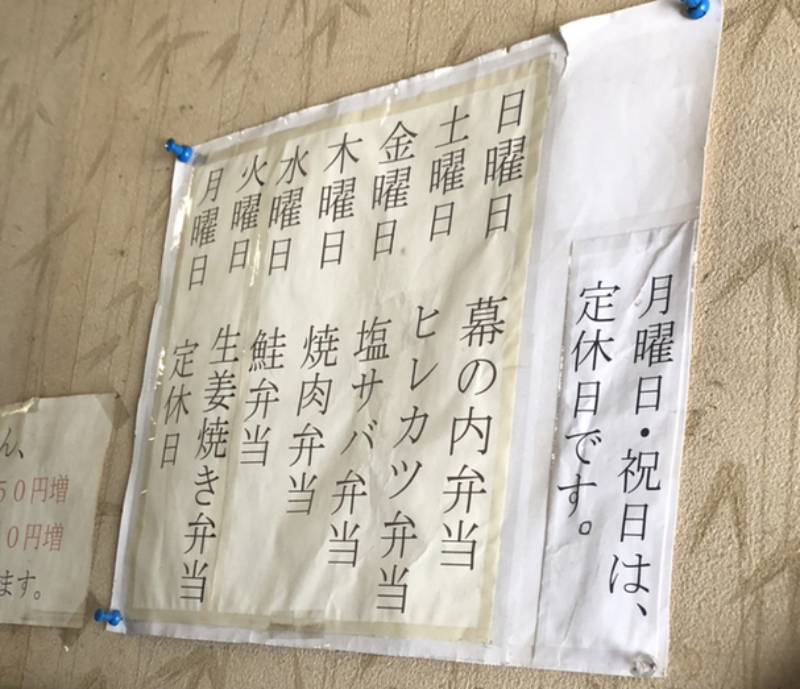 月曜日・祝日は、
定休日です。
日曜日 幕の内弁当
土曜日 ヒレカツ弁当
金曜日 塩サバ弁当
木曜日 焼肉弁当
水曜日 鮭弁当
火曜日 生姜焼き弁当
月曜日 定休日
ん、
50円増
0円増
ます。